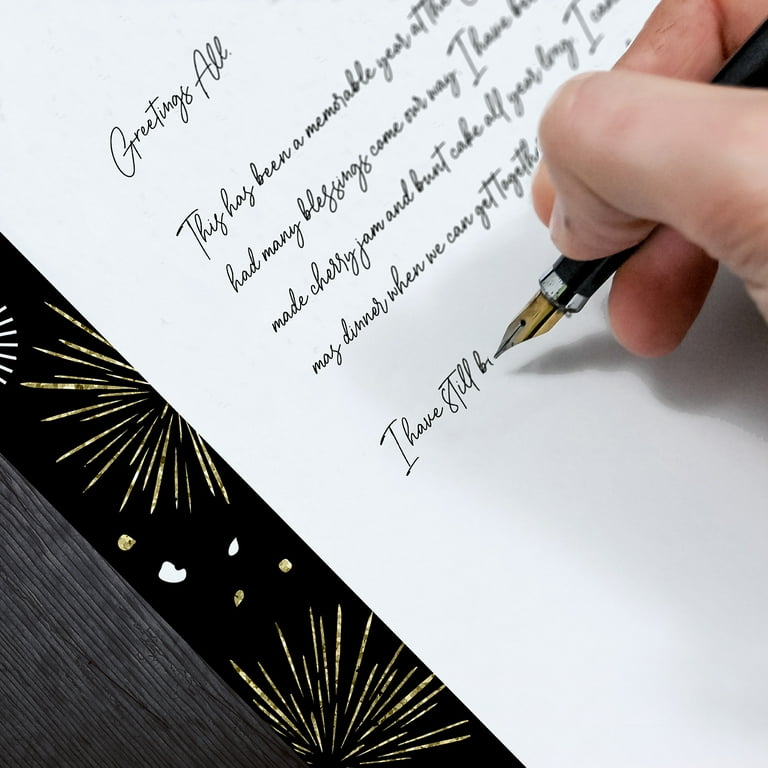 Greetings All.
This has been a memorable year at the
had many blessings come our way. I have
made cherry jam and bunt cake all year long. I can
mas dinner when we can get togeth
I have still b